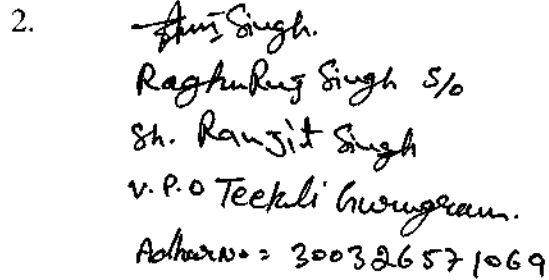 2. Singh.
RaghuRaj Singh S/o
Sh. Ranjit Singh
V.P.O Teekli Gurugram.
Adhar No = 300326571069